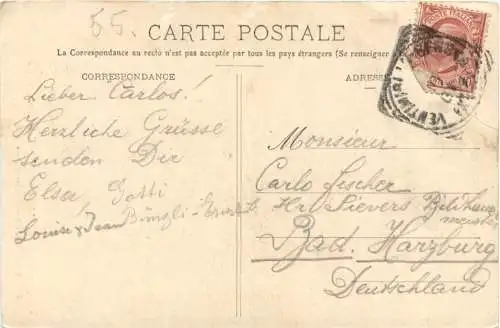 55.
CARTE POSTALE
La Correspondance au recto n'est pas acceptée par tous les pays étrangers (Se renseigner
CORRESPONDANCE
ADRESSE
Lieber Carlos!
Herzliche Grüsse
senden Dir
Elsa, Gotti
Louise & Jean Bingli-
Monsieur
Carlo Fischer
Hr. Sievers
Bad. Harzburg
Deutschland
POSTE ITALIANE
VENTIMI